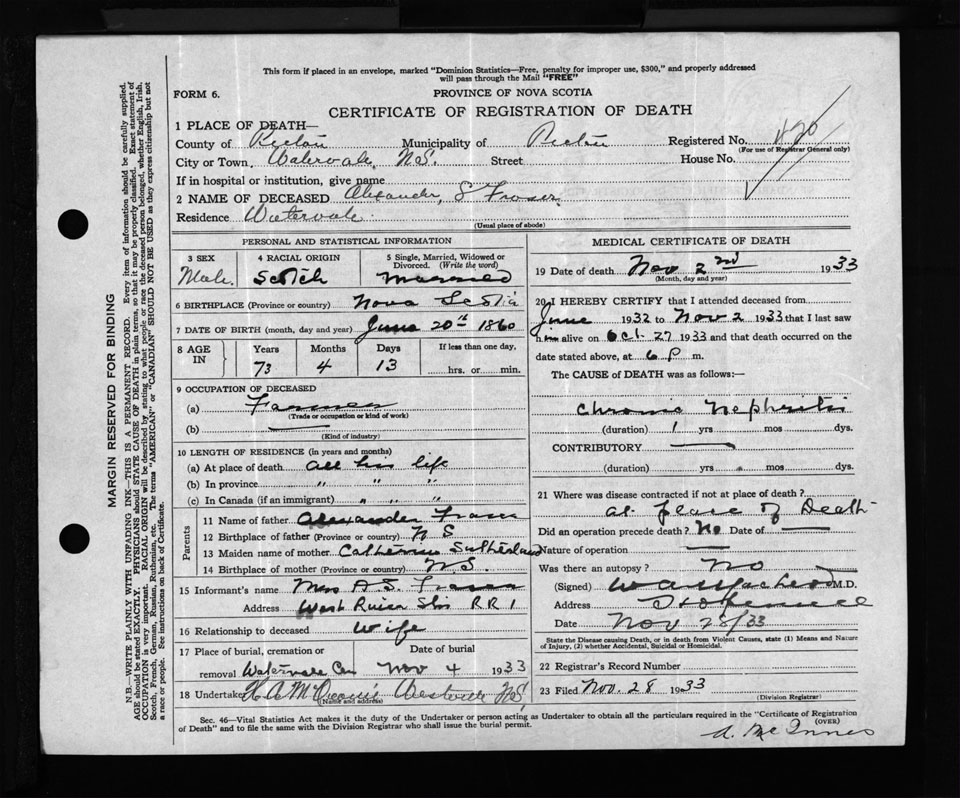 This form if placed in an envelope, marked "Dominion Statistics—Free, penalty for improper use, $300," and properly addressed
will pass through the Mail "FREE"
FORM 6.
PROVINCE OF NOVA SCOTIA
CERTIFICATE OF REGISTRATION OF DEATH
1 PLACE OF DEATH—
County of Pictou Municipality of Pictou Registered No. 420
(For use of Registrar General only)
City or Town. Watervale, N.S. Street House No.
If in hospital or institution, give name
2 NAME OF DECEASED Alexander, S Fraser
Residence Watervale.
(Usual place of abode)
PERSONAL AND STATISTICAL INFORMATION
3 SEX
Male.
4 RACIAL ORIGIN
Scotch
5 Single, Married, Widowed or
Divorced. (Write the word)
Married
6 BIRTHPLACE (Province or country) Nova Scotia
7 DATE OF BIRTH (month, day and year) June 20th 1860
8 AGE IN
Years Months Days If less than one day,
73 4 13 hrs. or min.
9 OCCUPATION OF DECEASED
(a) Farmer
(Trade or occupation or kind of work)
(b)
(Kind of industry)
10 LENGTH OF RESIDENCE (in years and months)
(a) At place of death all his life
(b) In province " " "
(c) In Canada (if an immigrant) " " "
Parents
11 Name of father Alexander Fraser
12 Birthplace of father (Province or country) N S
13 Maiden name of mother Catherine Sutherland
14 Birthplace of mother (Province or country) N.S.
15 Informant's name Mrs A S. Fraser
Address West River Stn RR 1
16 Relationship to deceased Wife
17 Place of burial, cremation or Date of burial
removal Watervale Cem Nov 4 1933
18 Undertaker H A Westville N.S.
(Name and address)
MEDICAL CERTIFICATE OF DEATH
19 Date of death Nov 2nd 1933
(Month, day and year)
20 I HEREBY CERTIFY that I attended deceased from
June 1932 to Nov 2 1933 that I last saw
him alive on Oct. 27 1933 and that death occurred on the
date stated above, at 6 P m.
The CAUSE of DEATH was as follows:—
Chronic Nephritis
(duration) 1 yrs mos dys.
CONTRIBUTORY
(duration) yrs mos dys.
21 Where was disease contracted if not at place of death?
at place of Death
Did an operation precede death? No Date of
Nature of operation
Was there an autopsy? No
(Signed) W A MacLeod M.D.
Address Hopewell
Date Nov 28/33
State the Disease causing Death, or in death from Violent Causes, state (1) Means and Nature
of Injury, (2) whether Accidental, Suicidal or Homicidal.
22 Registrar's Record Number
23 Filed Nov. 28 1933
(Division Registrar)
Sec. 46—Vital Statistics Act makes it the duty of the Undertaker or person acting as Undertaker to obtain all the particulars required in the "Certificate of Registration
of Death" and to file the same with the Division Registrar who shall issue the burial permit.
(OVER)
A. McInnes
MARGIN RESERVED FOR BINDING
N.B.—WRITE PLAINLY WITH UNFADING INK—THIS IS A PERMANENT RECORD. Every item of information should be carefully supplied.
AGE should be stated EXACTLY. PHYSICIANS should STATE CAUSE OF DEATH in plain terms, so that it may be properly classified. Exact statement of
OCCUPATION is very important. RACIAL ORIGIN will be described by stating to what people or race the deceased person belonged, whether English, Irish,
Scotch, French, German, Russian, Ruthenian, etc. The terms "AMERICAN" or "CANADIAN" SHOULD NOT BE USED as they express citizenship but not
a race or people. See instructions on back of Certificate.